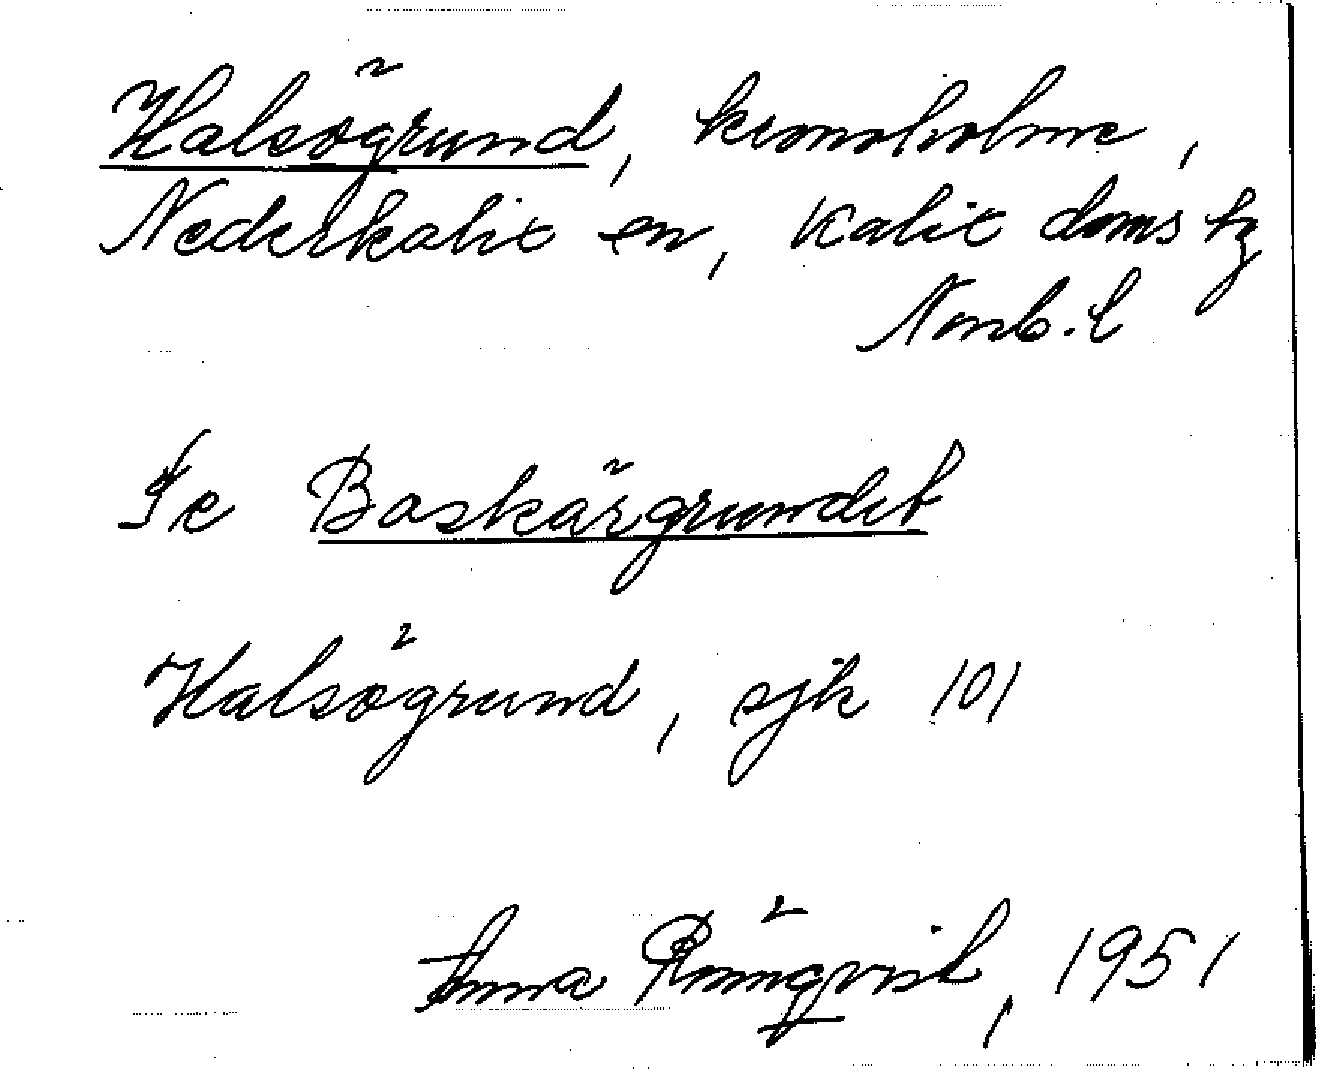 Halsögrund, kronoholme,
Nederkalix sn, Kalix doms tg
Norrb. l
Se Baskärgrundet
Halsögrund, sjk 101
Anna Rönnqvist, 1951